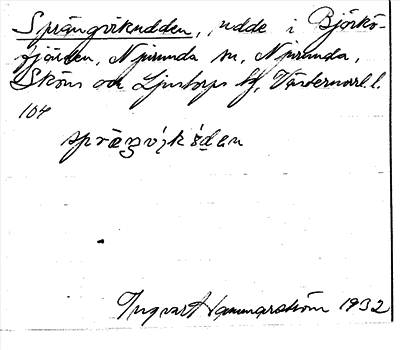 Sprängvikudden, udde i Björkö-
fjärden, Njurunda sn, Njurunda,
Sköns och Ljustorps tg, Västernorrl. l.
104
Ingvar Hammarström 1932